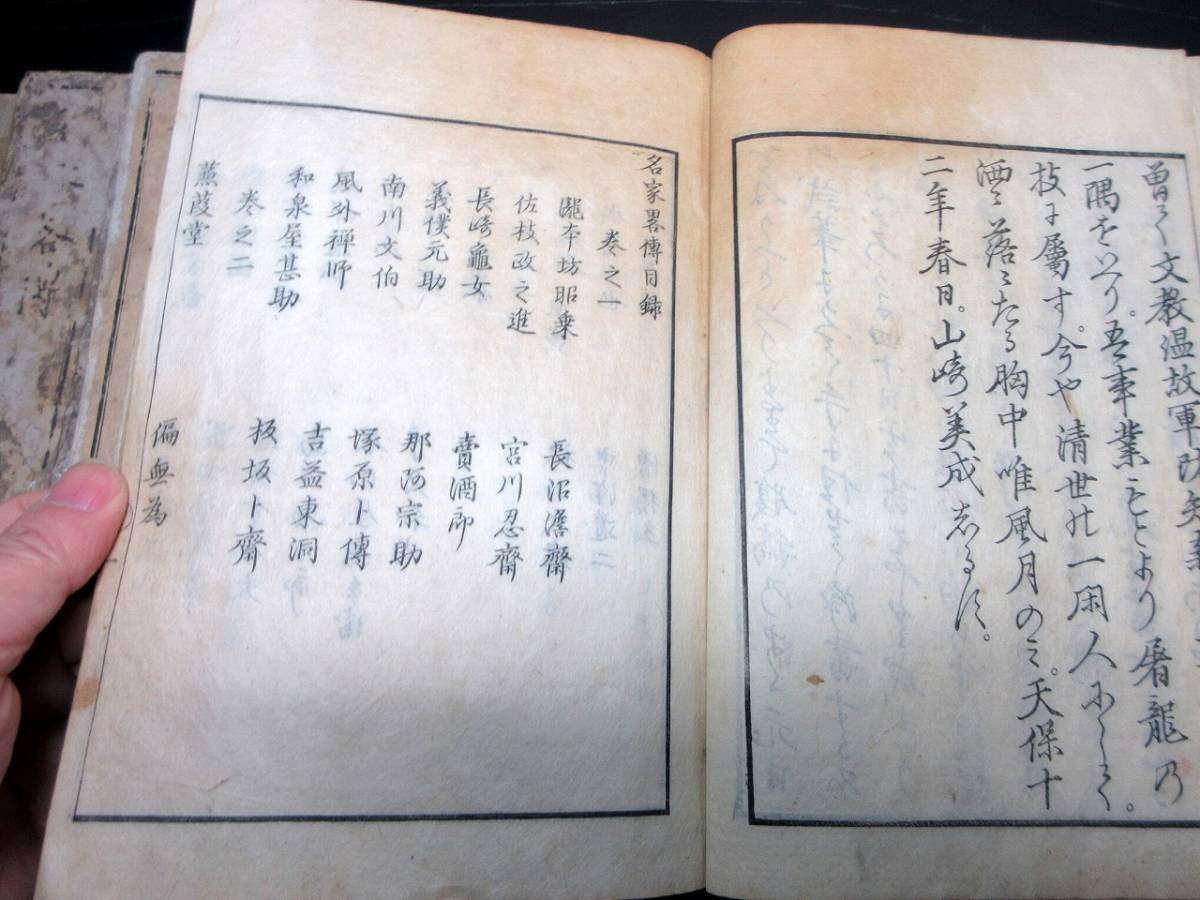 曽て文教温故軍防矢業の
一隅をとり。吾事業もとより屠龍乃
技に屬す。今や清世の一閑人にして。
洒々落々たる胸中唯風月のミ。天保十
二年春日。山﨑美成志るす。
名家畧傳目録
巻之一
瀧本坊昭乗 長沼澹齋
佐枝政之進 宮川忍齋
長﨑龜女 賣酒郎
義僕元助 那阿宗助
南川文伯 塚原卜傳
風外禅师 吉益東洞
和泉屋甚助 板坂卜齋
巻之二
蒹葭堂 偏無為